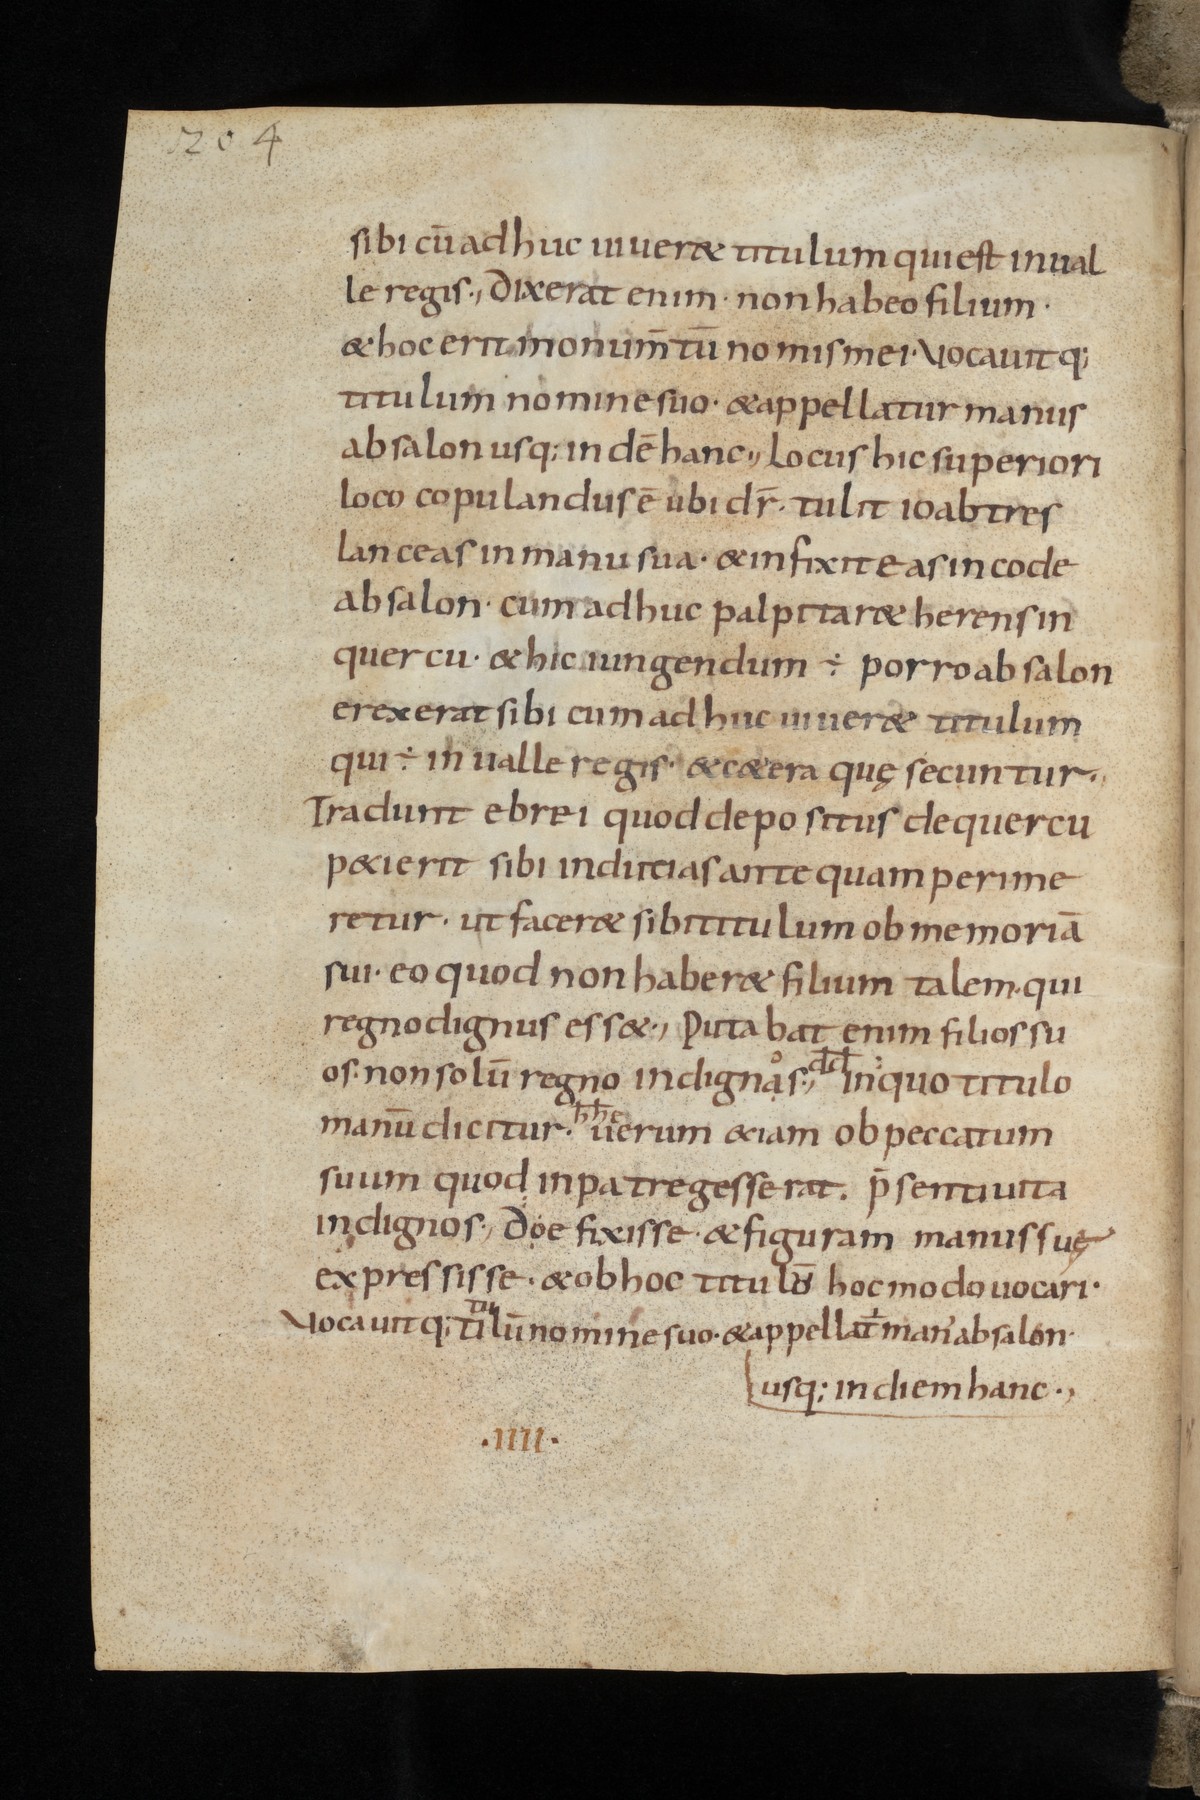 204
sibi cū adhuc uiueret titulum qui est in ual
le regis., Dixerat enim · non habeo filium ·
& hoc erit monum̄tū nominis mei · Vocauitq;
titulum nomine suo · & appellatur manus
absalon usq; in dē hanc., Locus hic superiori
loco copulandus ē ubi dr̄ · tulit ioab tres
lanceas in manu sua · & infixit eas in corde
absalon · cum adhuc palpitar& herens in
quercu · & hic iungendum ÷ porro absalon
erexerat sibi cum adhuc uiuer& titulum
qui ÷ in ualle regis · & c&era quę secuntur.,
Tradunt ebrei quod depositus de quercu
p&ierit sibi inditias ante quam perime
retur · ut facer& sibi titulum ob memoriā
sui · eo quod non haber& filium talem · qui
regno dignus ess&., Putabat enim filios su
os · non solū regno indignos., dd in quo titulo
manū dicitur · hhe uerum &iam ob peccatum
suum quod in patre gesserat. p̄senti uita
indignos., Doe fixisse · & figuram manus suę
expressisse · & ob hoc titulū hoc modo uocari ·
Vocauitq; titulū nomine suo · & appellat̄ man' absalon ·
usq; in diem hanc .,
·IIII·